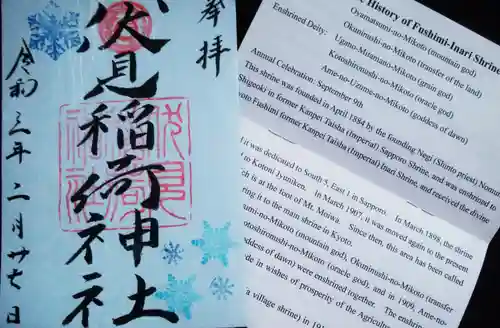 奉拝
伏見稲荷神社
令和三年二月廿七日
e History of Fushimi-Inari Shrine
Oyamatsumi-no-Mikoto (mountain god)
Okunirushi-no-Mikoto (transfer of the land)
Enshrined Deity: Ugano-Mitamano-Mikoto (grain god)
Kotoshironushi-no-Mikoto (oracle god)
Ame-no-Uzume-no-Mikoto (goddess of dawn)
Annual Celebration: September 9th
This shrine was founded in April 1884 by the founding Negi (Shinto priest) Nom
Shigeoki) in former Kanpei Taisha (Imperial) Sapporo Shrine, and was enshrined to
Fushimi former Kanpei Taisha (Imperial) Inari Shrine, and received the divine
it was dedicated to South 5, East 1 in Sapporo. In March 1898, the shrine
to Kotoni Jyuniken. In March 1907, it was moved again to the present
ch is at the foot of Mt. Moiwa. Since then, this area has been called
ring it to the main shrine in Kyoto.
umi-no-Mikoto (mountain god), Okunirushi-no-Mikoto (transfer
otoshironushi-no-Mikoto (oracle god), and in 1909, Ame-no-
ddess of dawn) were enshrined together. The enshrined
de in wishes of prosperity of the Agricultu
a village shrine) in 19